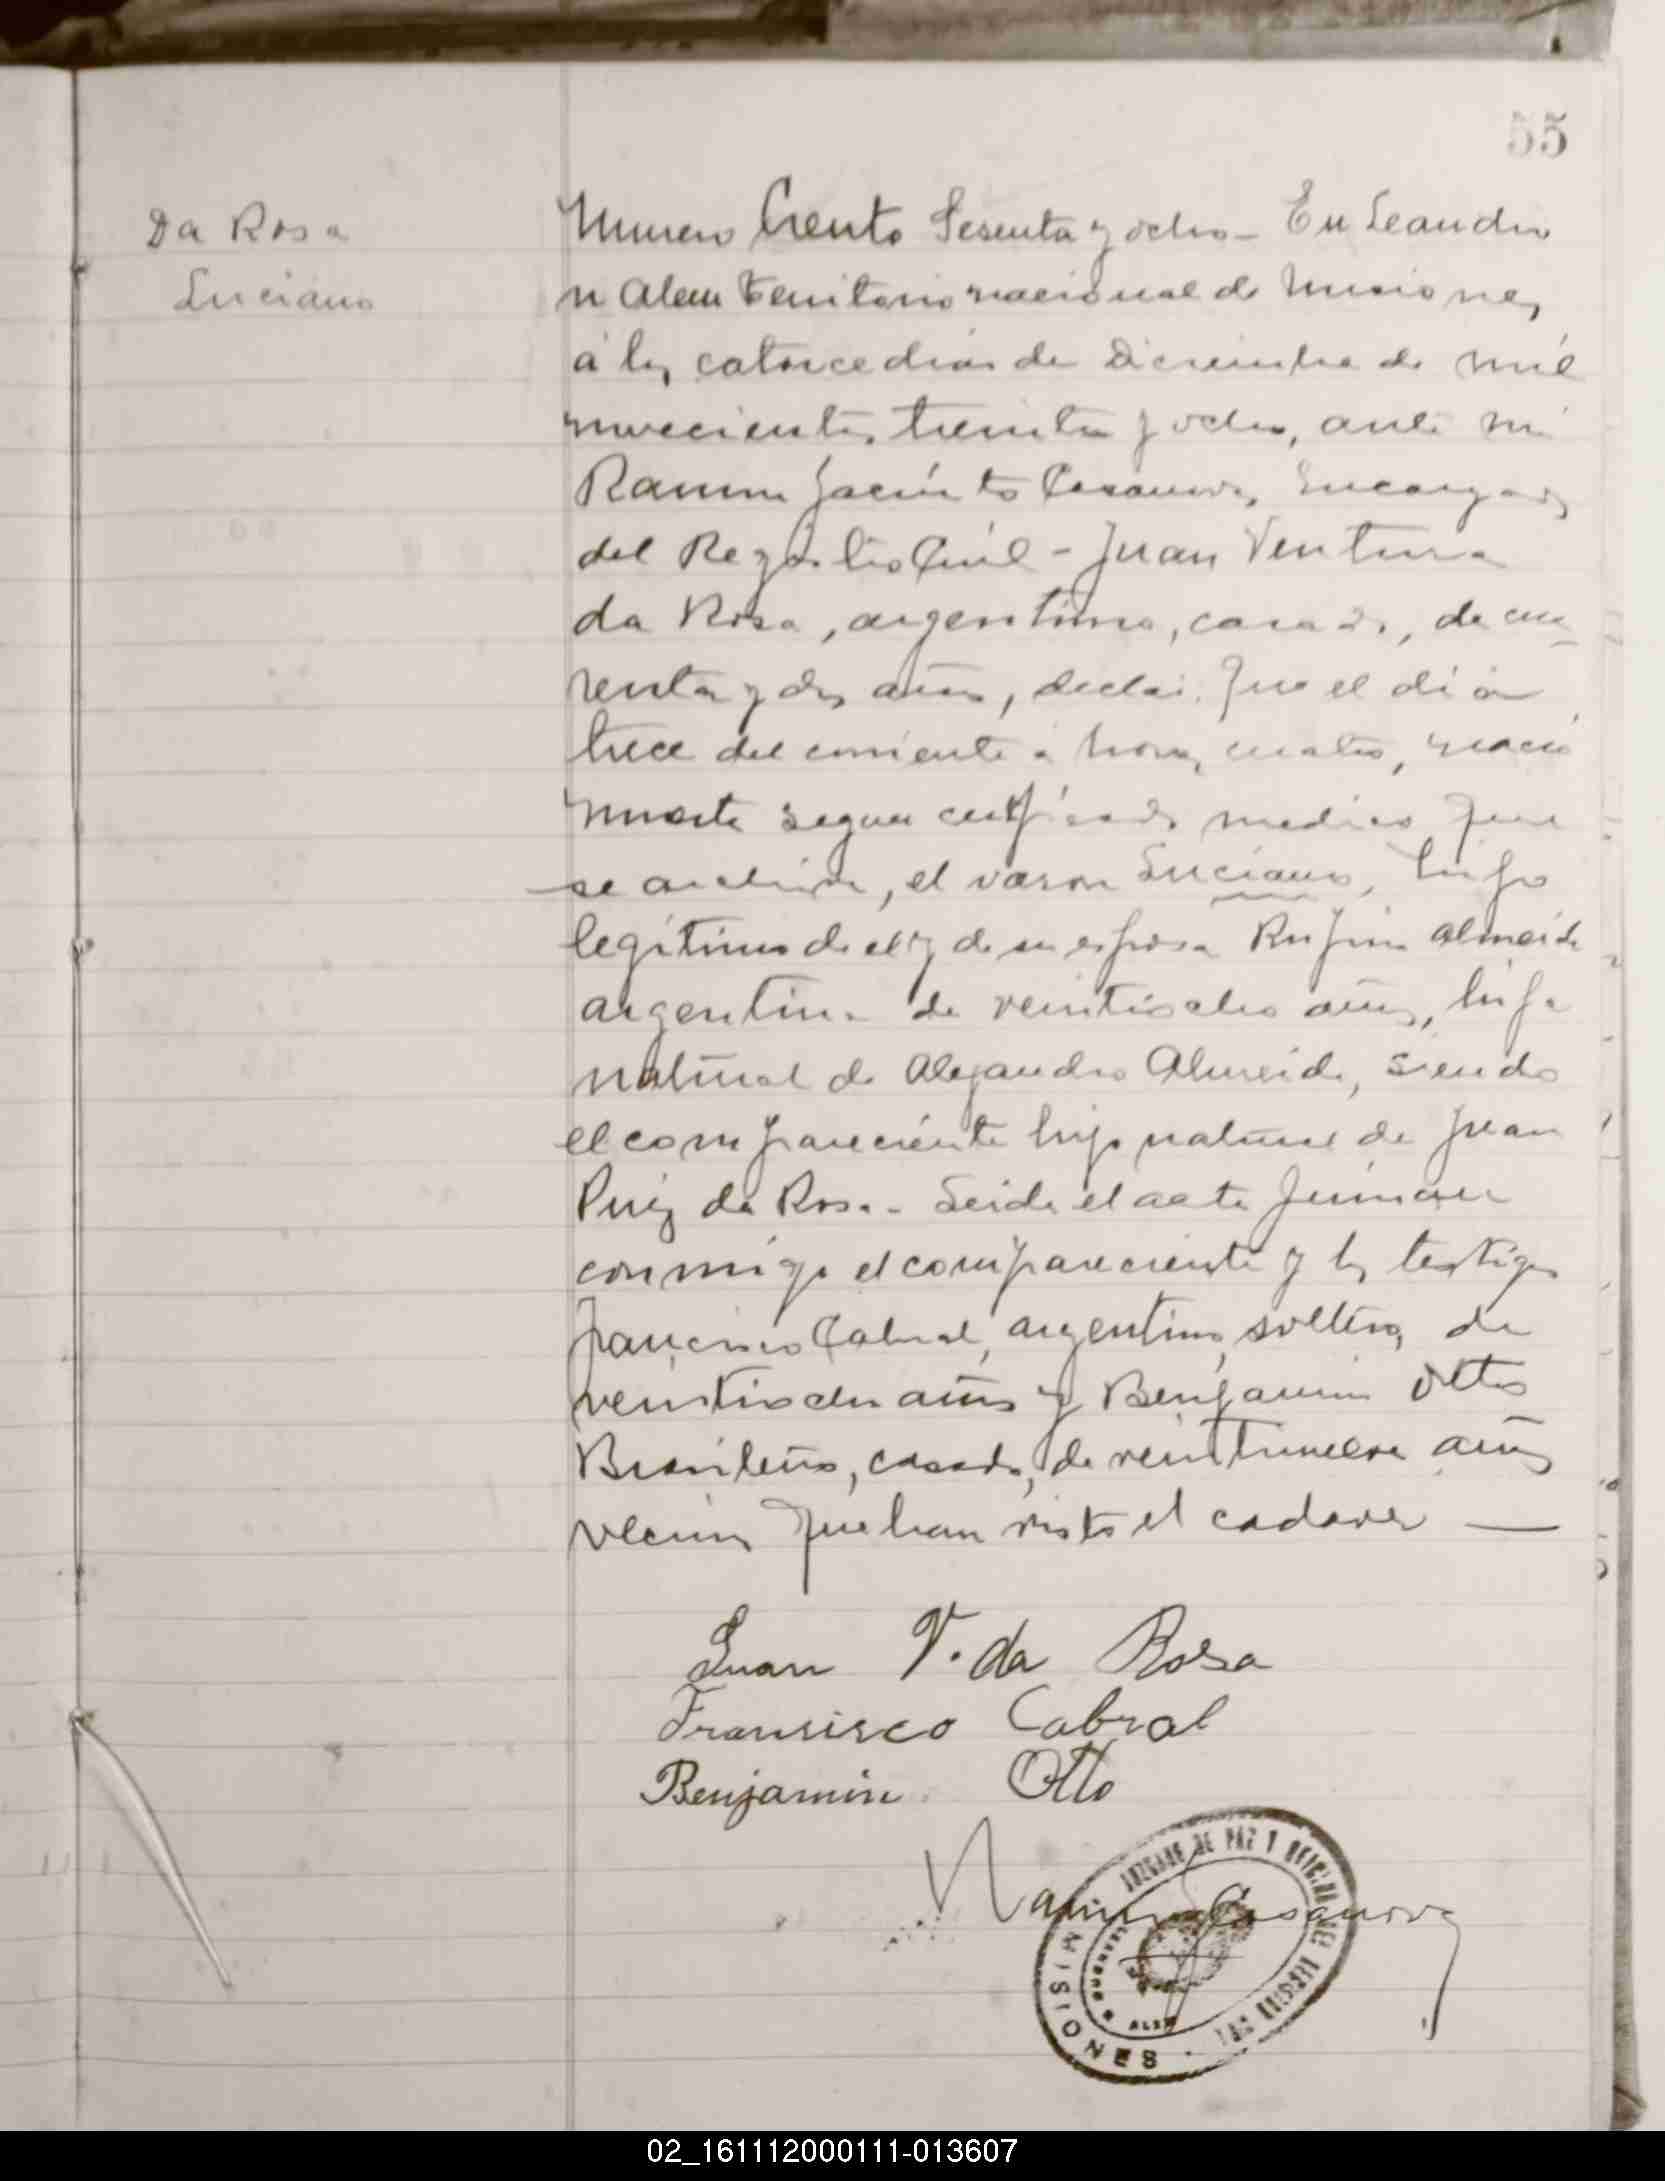 55
Da Rosa
Luciano
Numero Ciento Sesenta y ocho - En Leandro
N Alem Territorio nacional de Misiones,
á los catorce dias de Diciembre de mil
novecientos treinta y ocho, ante mi
Ramon Jacinto Casanova, Encargado
del Registro Civil - Juan Ventura
da Rosa, argentino, casado, de cua-
renta y dos años, declaró: Que el dia
trece del corriente á horas cuatro, nació
muerto segun certificado medico que
se archiva, el varon Luciano, hijo
legítimo de el y de su esposa Rufina Almeida
argentina de veintiocho años, hija
natural de Alejandra Almeida, siendo
el compareciente hijo natural de Juan
Ruiz da Rosa. - Leida el acta firman
conmigo el compareciente y los testigos
Francisco Cabral, argentino, soltero, de
veintiocho años y Benjamin Otto
Brasileño, casado, de veintinueve años
vecinos que han visto el cadaver —
Juan V. da Rosa
Fransisco Cabral
Benjamin Otto
Ramon Casanova
JUZGADO DE PAZ Y OFICINA DEL REGISTRO CIVIL
MISIONES
ALEM
02_161112000111-013607